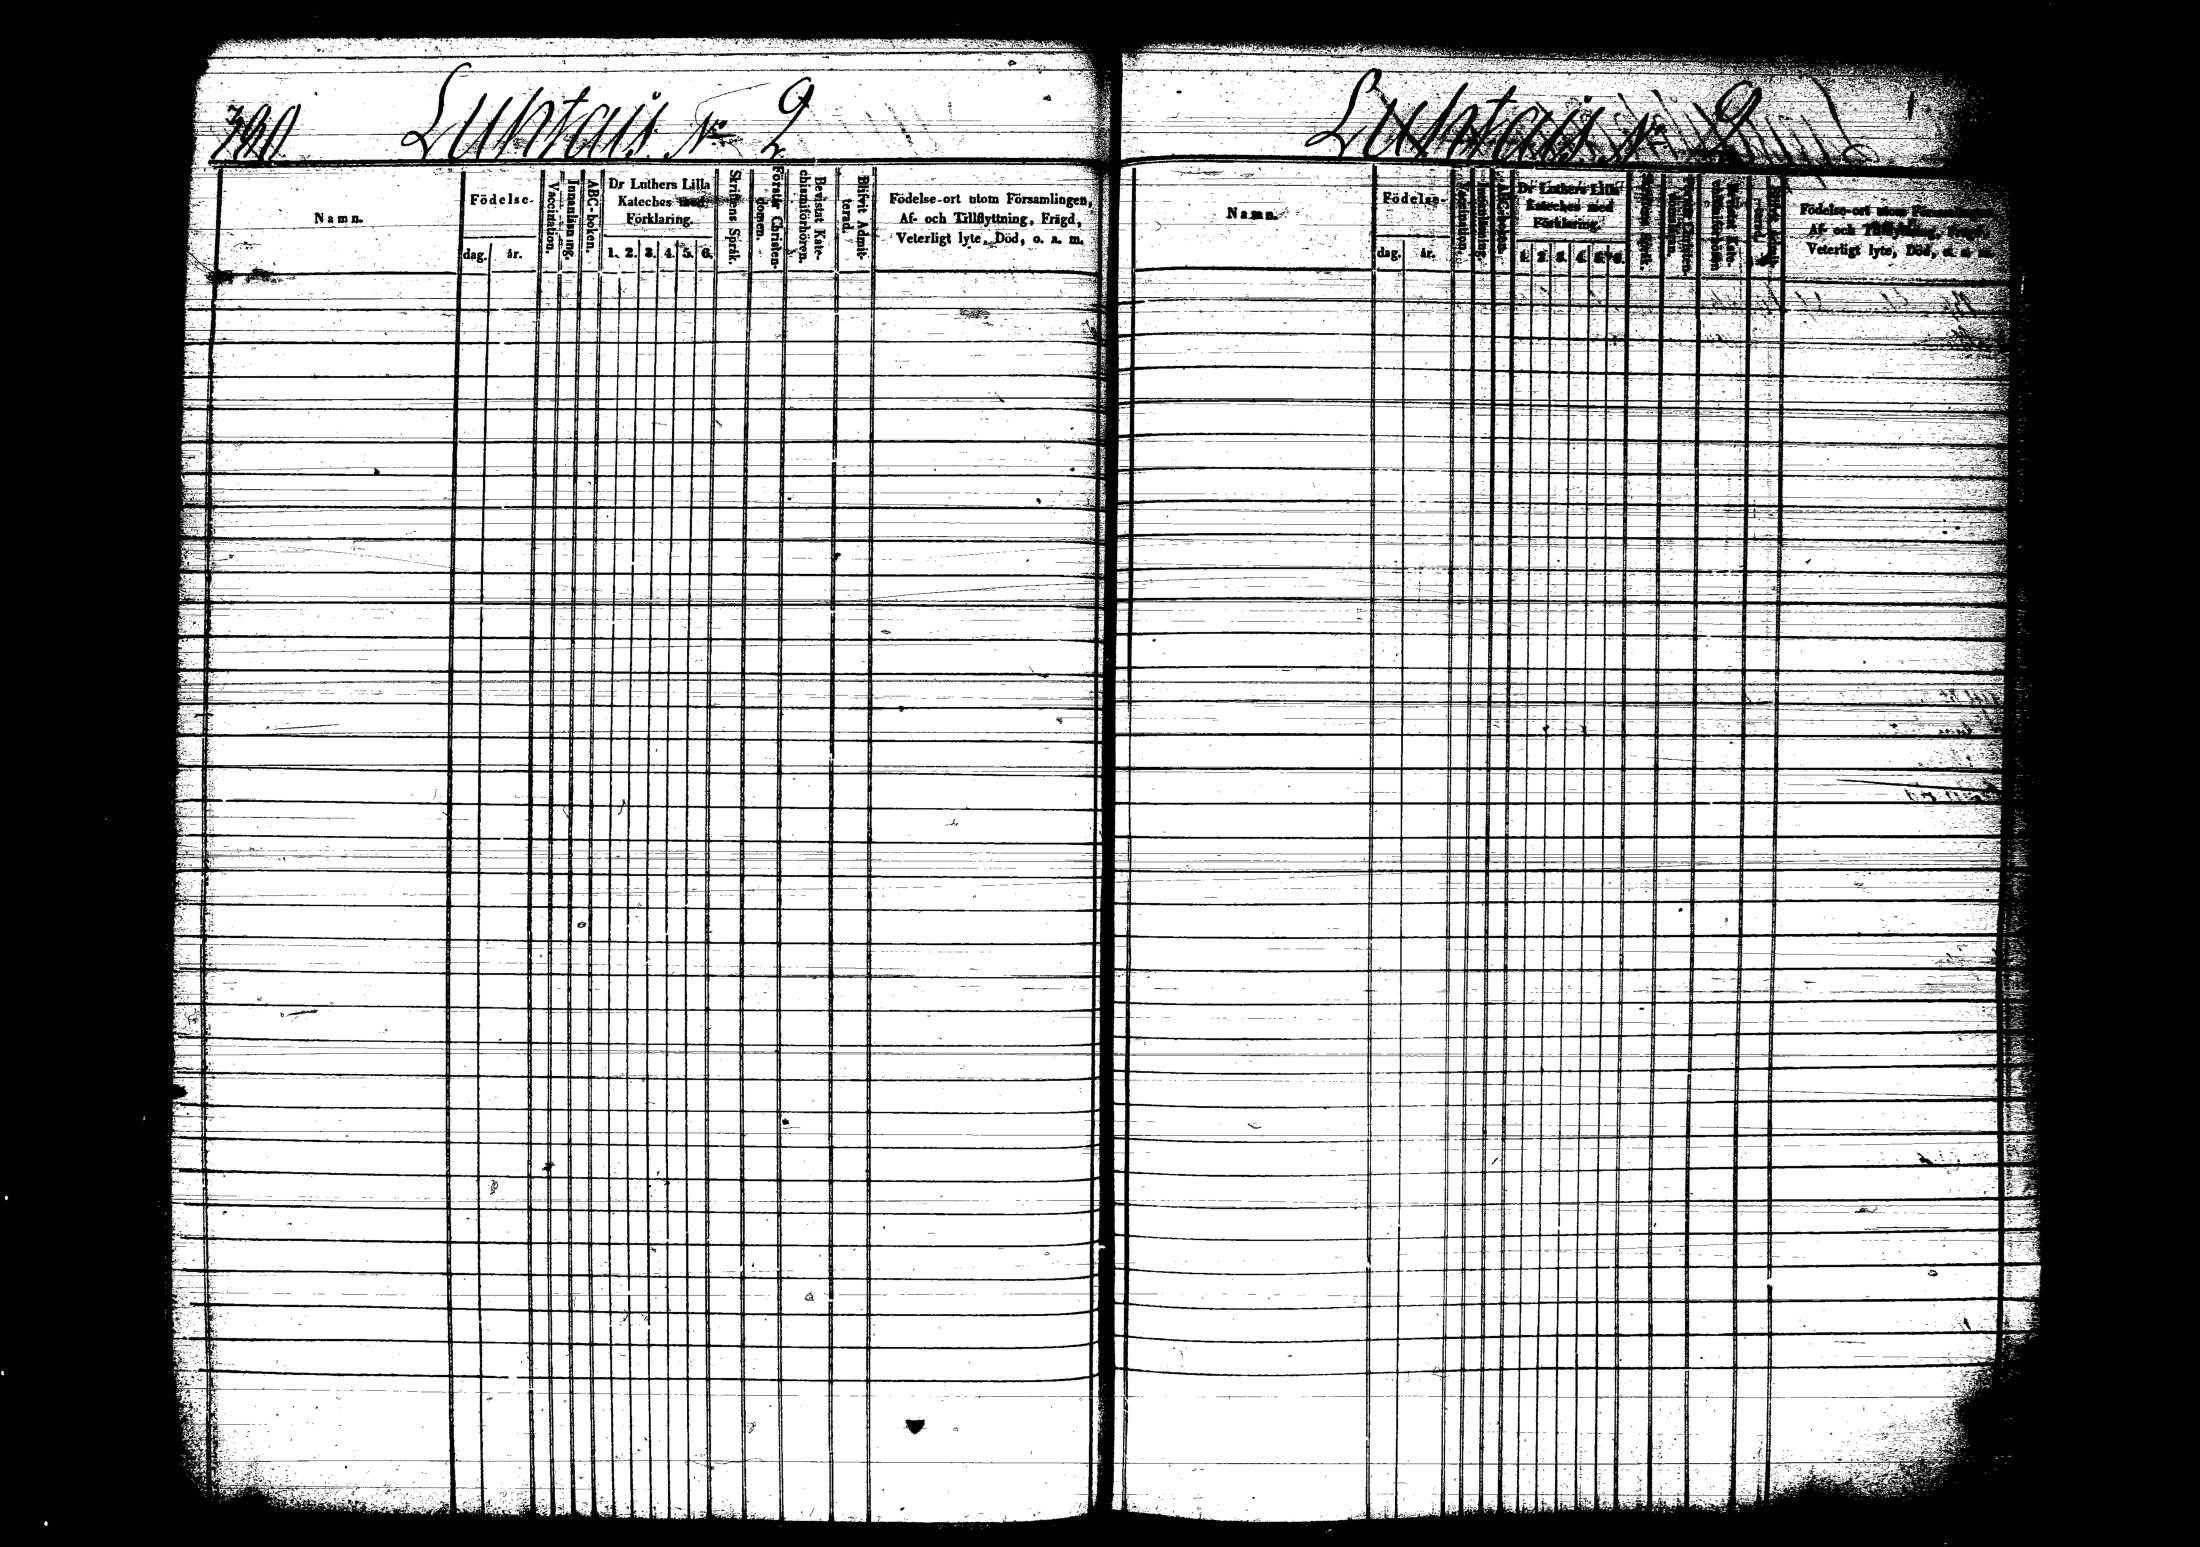 390
Luhtais № 2
Namn.
Födelse-
dag.
år.
Vaccination.
Innanläsning.
ABC-boken.
Dr Luthers Lilla
Kateches med
Förklaring.
1. 2. 3. 4. 5. 6.
Skriftens Språk.
Förstår Christen-
domen.
Bevistat Kate-
chismiförhören.
Blifvit Admit-
terad.
Födelse-ort utom Församlingen,
Af- och Tillflyttning, Frägd,
Veterligt lyte, Död, o. a. m.
Luhtais № 2
Namn.
Födelse-
dag.
år.
Vaccination.
Innanläsning.
ABC-boken.
Dr Luthers Lilla
Kateches med
Förklaring.
1. 2. 3. 4. 5. 6.
Födelse-ort utom Församlingen,
Af- och Tillflyttning, Frägd,
Veterligt lyte, Död, o. a. m.